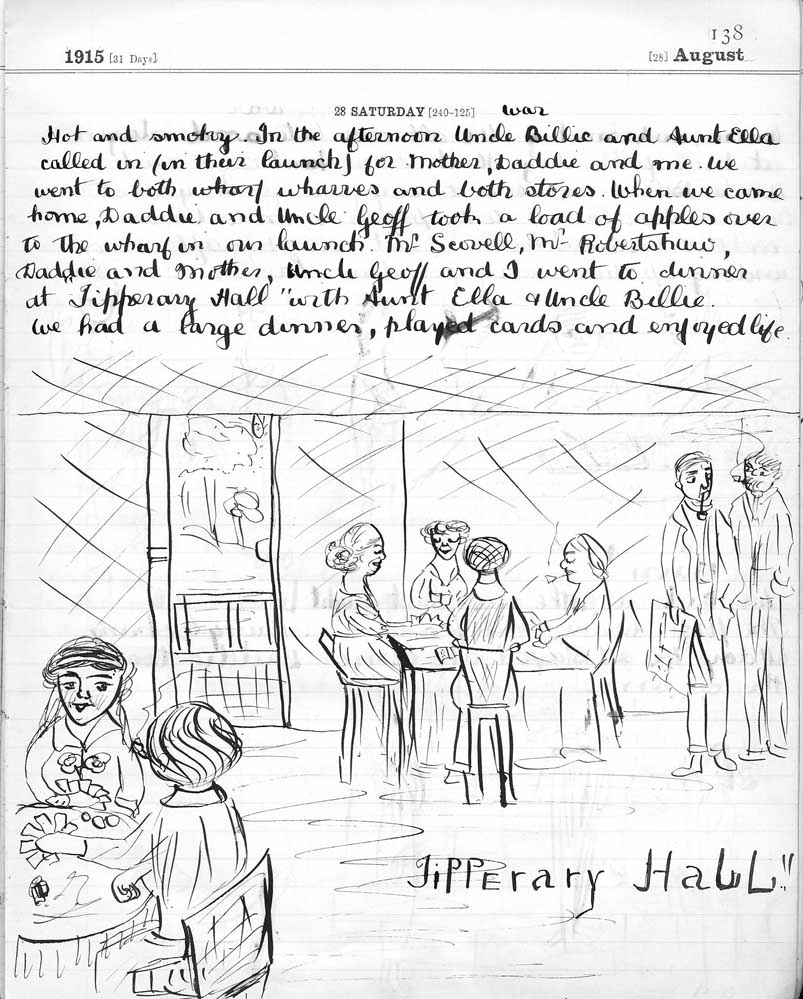 138
1915 [31 Days] [28] August
28 SATURDAY [240-125] war
Hot and smoky. In the afternoon Uncle Billie and Aunt Ella
called in (in their launch) for Mother, Daddie and me. We
went to both wharf wharves and both stores. When we came
home, Daddie and Uncle Geoff took a load of apples over
to the wharf in our launch. Mr Scovell, Mr Robertshaw,
Daddie and Mother, Uncle Geoff and I went to dinner
at "Tipperary Hall" with Aunt Ella & Uncle Billie.
We had a large dinner, played cards and enjoyed life.
Tipperary Hall"